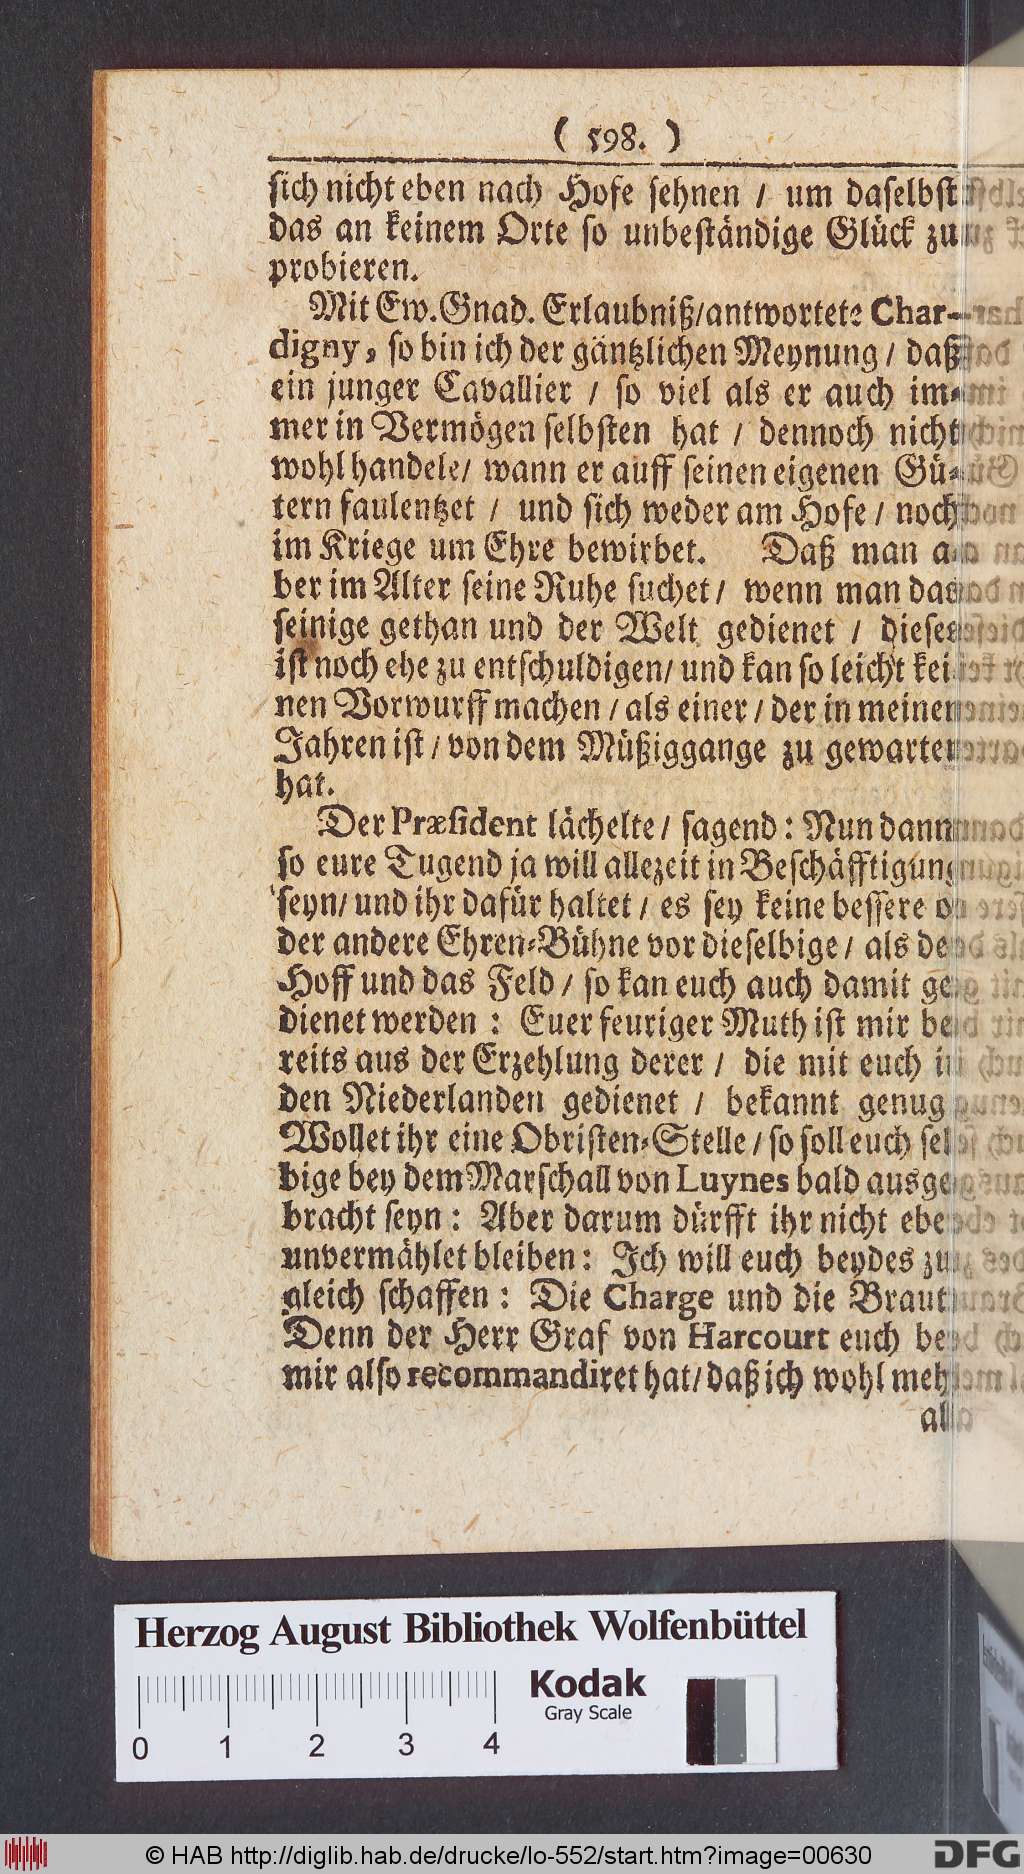 ( 598. )
sich nicht eben nach Hofe sehnen / um daselbst
das an keinem Orte so unbeständige Glück zu
probieren.
Mit Ew. Gnad. Erlaubniß/antwortete Char-
digny, so bin ich der gäntzlichen Meynung / daß
ein junger Cavallier / so viel als er auch im-
mer in Vermögen selbsten hat / dennoch nicht
wohl handele/ wann er auff seinen eigenen Gü-
tern faulentzet / und sich weder am Hofe / noch
im Kriege um Ehre bewirbet. Daß man a-
ber im Alter seine Ruhe suchet / wenn man das
seinige gethan und der Welt gedienet / dieses
ist noch ehe zu entschuldigen/ und kan so leicht kei
nen Vorwurff machen / als einer / der in meinen
Jahren ist / von dem Müßiggange zu gewarten
hat.
Der Præsident lächelte / sagend: Nun dann
so eure Tugend ja will allezeit in Beschäfftigung
seyn/ und ihr dafür haltet / es sey keine bessere o
der andere Ehren-Bühne vor dieselbige / als de
Hoff und das Feld / so kan euch auch damit ge
dienet werden: Euer feuriger Muth ist mir be
reits aus der Erzehlung derer / die mit euch in
den Niederlanden gedienet / bekannt genug
Wollet ihr eine Obristen-Stelle / so soll euch sel
bige bey dem Marschall von Luynes bald ausge
bracht seyn: Aber darum dürfft ihr nicht ebe
unvermählet bleiben: Ich will euch beydes zu
gleich schaffen: Die Charge und die Braut
Denn der Herr Graf von Harcourt euch be
mir also recommandiret hat/ daß ich wohl meh
all
Herzog August Bibliothek Wolfenbüttel
Kodak
Gray Scale
0 1 2 3 4
© HAB http://diglib.hab.de/drucke/lo-552/start.htm?image=00630
DFG